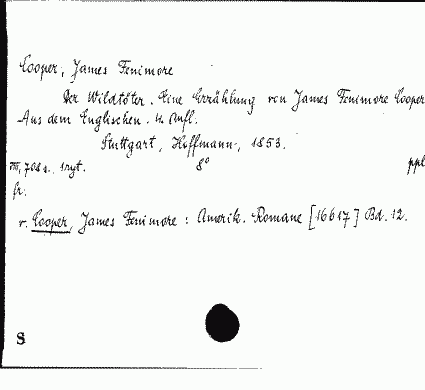 Cooper, James Fenimore
Der Wildtöter. Eine Erzählung von James Fenimore Cooper
Aus dem Englischen. 4. Aufl.
Stuttgart, Hoffmann, 1853.
VIII, 708 s. 1 ryt. 8° ppl
fr.
v. Cooper, James Fenimore: Amerik. Romane [16617] Bd. 12.
S